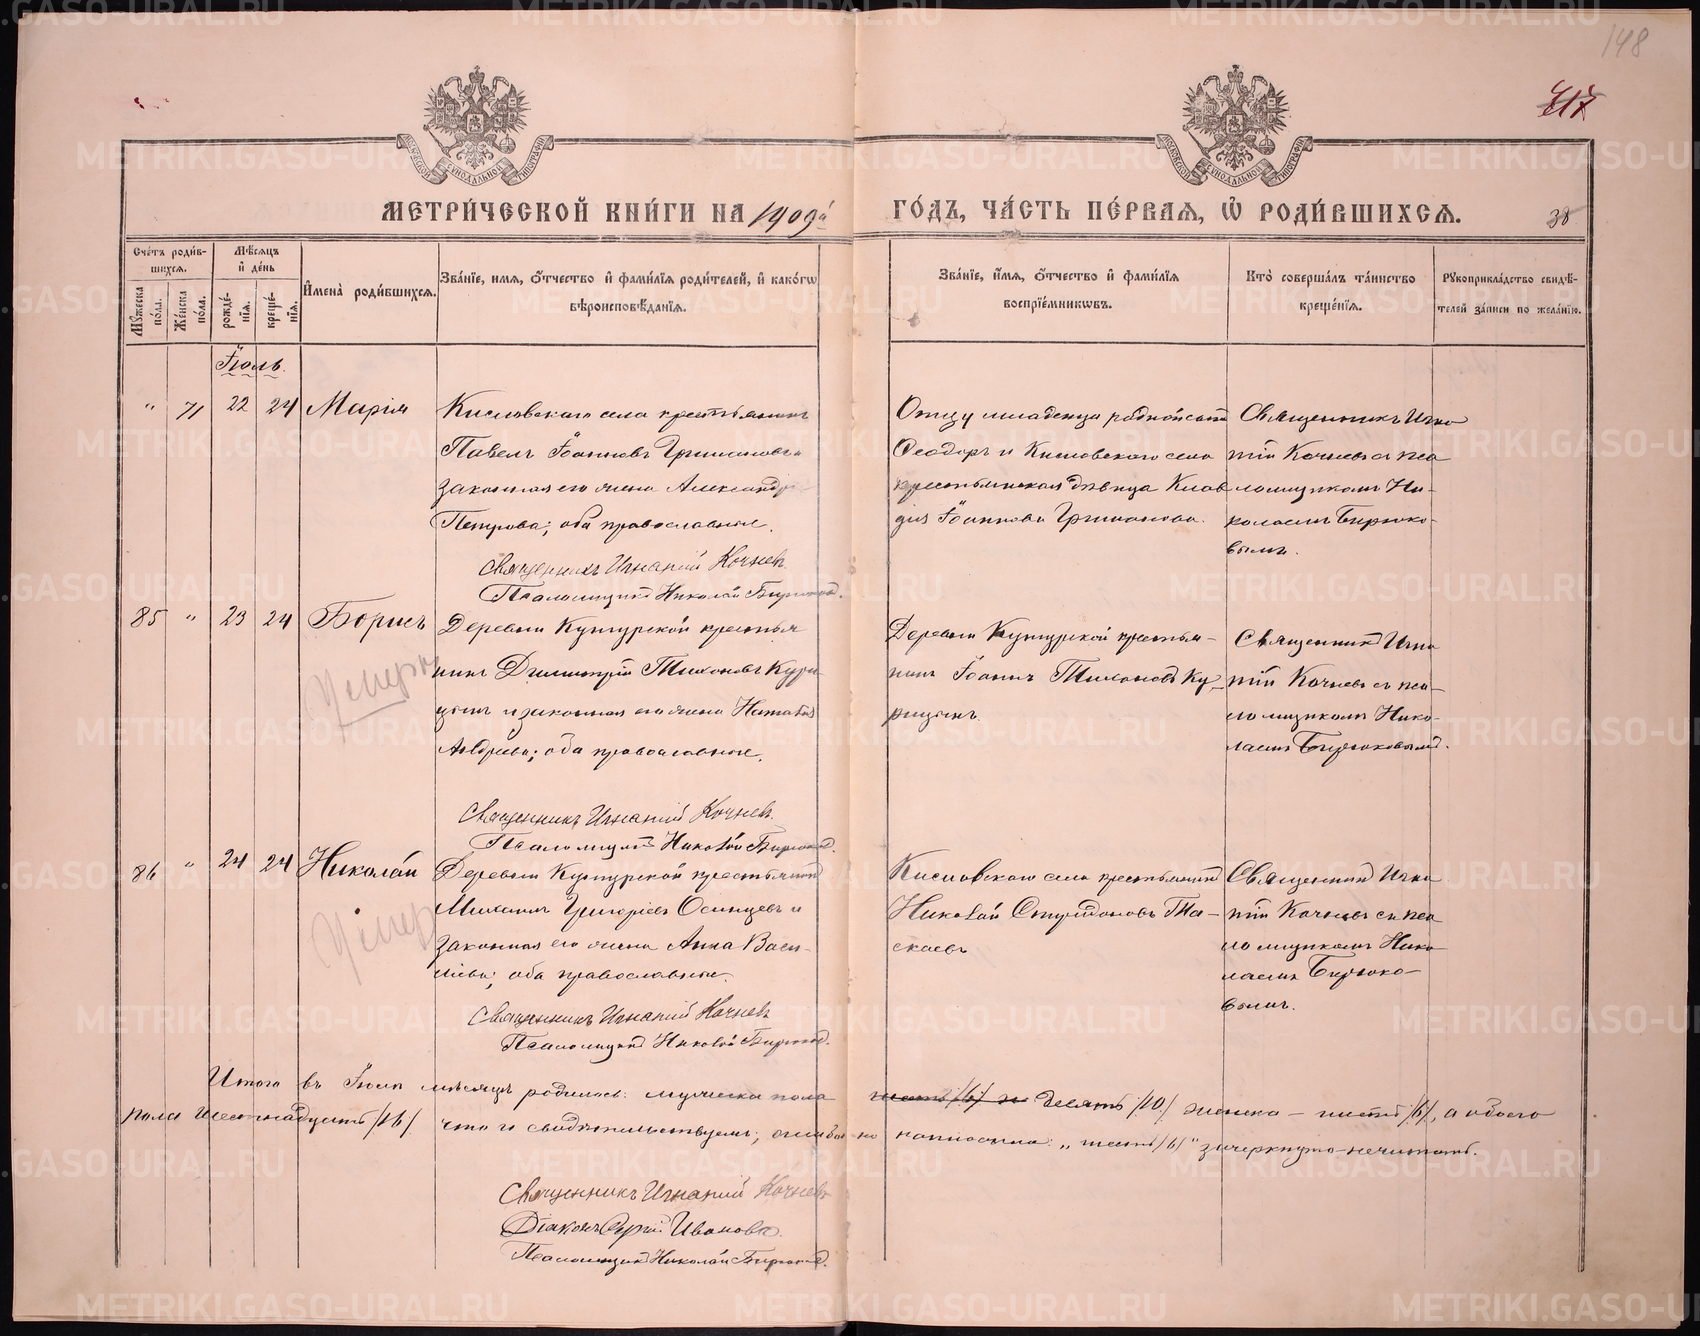 148
717
МЕТРИ́ЧЕСКОЙ КНИ́ГИ НА 1909й
ГО́ДЪ, ЧА́СТЬ ПЕ́РВАЯ, Ѡ РОДИ́ВШИХСЯ.
38
Сче́тъ роди́в-
шихся.
Мѣ́сяцъ
и҆ де́нь
Мꙋ́жеска
по́ла.
Же́нска
по́ла.
рожде́-
нїѧ.
креще́-
нїѧ.
И҆мена̀ роди́вшихся.
Зва́нїе, и҆мя, ѻ҆́тчество и҆ фами́лїѧ роди́телей, и҆ како́гѡ
вѣроисповѣ́данїѧ.
Зва́нїе, и҆́мя, ѻ҆́тчество и҆ фами́лїѧ
воспрїе́мниковъ.
Кто̀ соверша́лъ та́инство
креще́нїѧ.
Рꙋкоприкла́дство свидѣ́-
телей за́писи по жела́нїю.
Іюль.
" 71 22 24 Марія
Кисловскаго села крестьянинъ
Павелъ Іоанновъ Гришановъ и
законная его жена Александра
Петрова; оба православные.
Священникъ Игнатій Кочневъ
Псаломщикъ Николай Бирюковъ.
Отцу младенца родной братъ
Ѳеодоръ и Кисловскаго села
крестьянская дѣвица Клав
дія Іоаннова Гришанова.
Священникъ Игна
тій Кочневъ съ пса
ломщикомъ Ни-
колаемъ Бирюко-
вымъ.
85 " 23 24 Борисъ
Умеръ
Деревни Кунгурской крестья
нинъ Димитрій Тихоновъ Кури
цынъ и законная его жена Наталія
Андреева; оба православные.
Священникъ Игнатій Кочневъ.
Псаломщикъ Николай Бирюковъ.
Деревни Кунгурской крестья-
нинъ Іоаннъ Тихоновъ Ку-
рицынъ.
Священникъ Игна
тій Кочневъ съ пса-
ломщикомъ Нико-
лаемъ Бирюковымъ.
86 " 24 24 Николай
Умеръ
Деревни Кунгурской крестьянинъ
Михаилъ Григоріевъ Осинцевъ и
законная его жена Анна Васи-
ліева; оба православные.
Священникъ Игнатій Кочневъ
Псаломщикъ Николай Бирюковъ.
Кисловскаго села крестьянинъ
Николай Спиридоновъ Та-
скаевъ
Священникъ Игна
тій Кочневъ съ пса
ломщикомъ Нико
лаемъ Бирюко-
вымъ.
Итого въ Іюлѣ мѣсяцѣ родилось: мужеска пола шесть /6/ и десять /10/ женска – шесть /6/, а обоего
пола шестнадцать /16/ что и свидѣтельствуемъ; ошибочно написанно: „шесть /6/" зачеркнуто-нечитать.
Священникъ Игнатій Кочневъ
Діаконъ Сергій Ивановъ.
Псаломщикъ Николай Бирюковъ.
METRIKI.GASO-URAL.RU